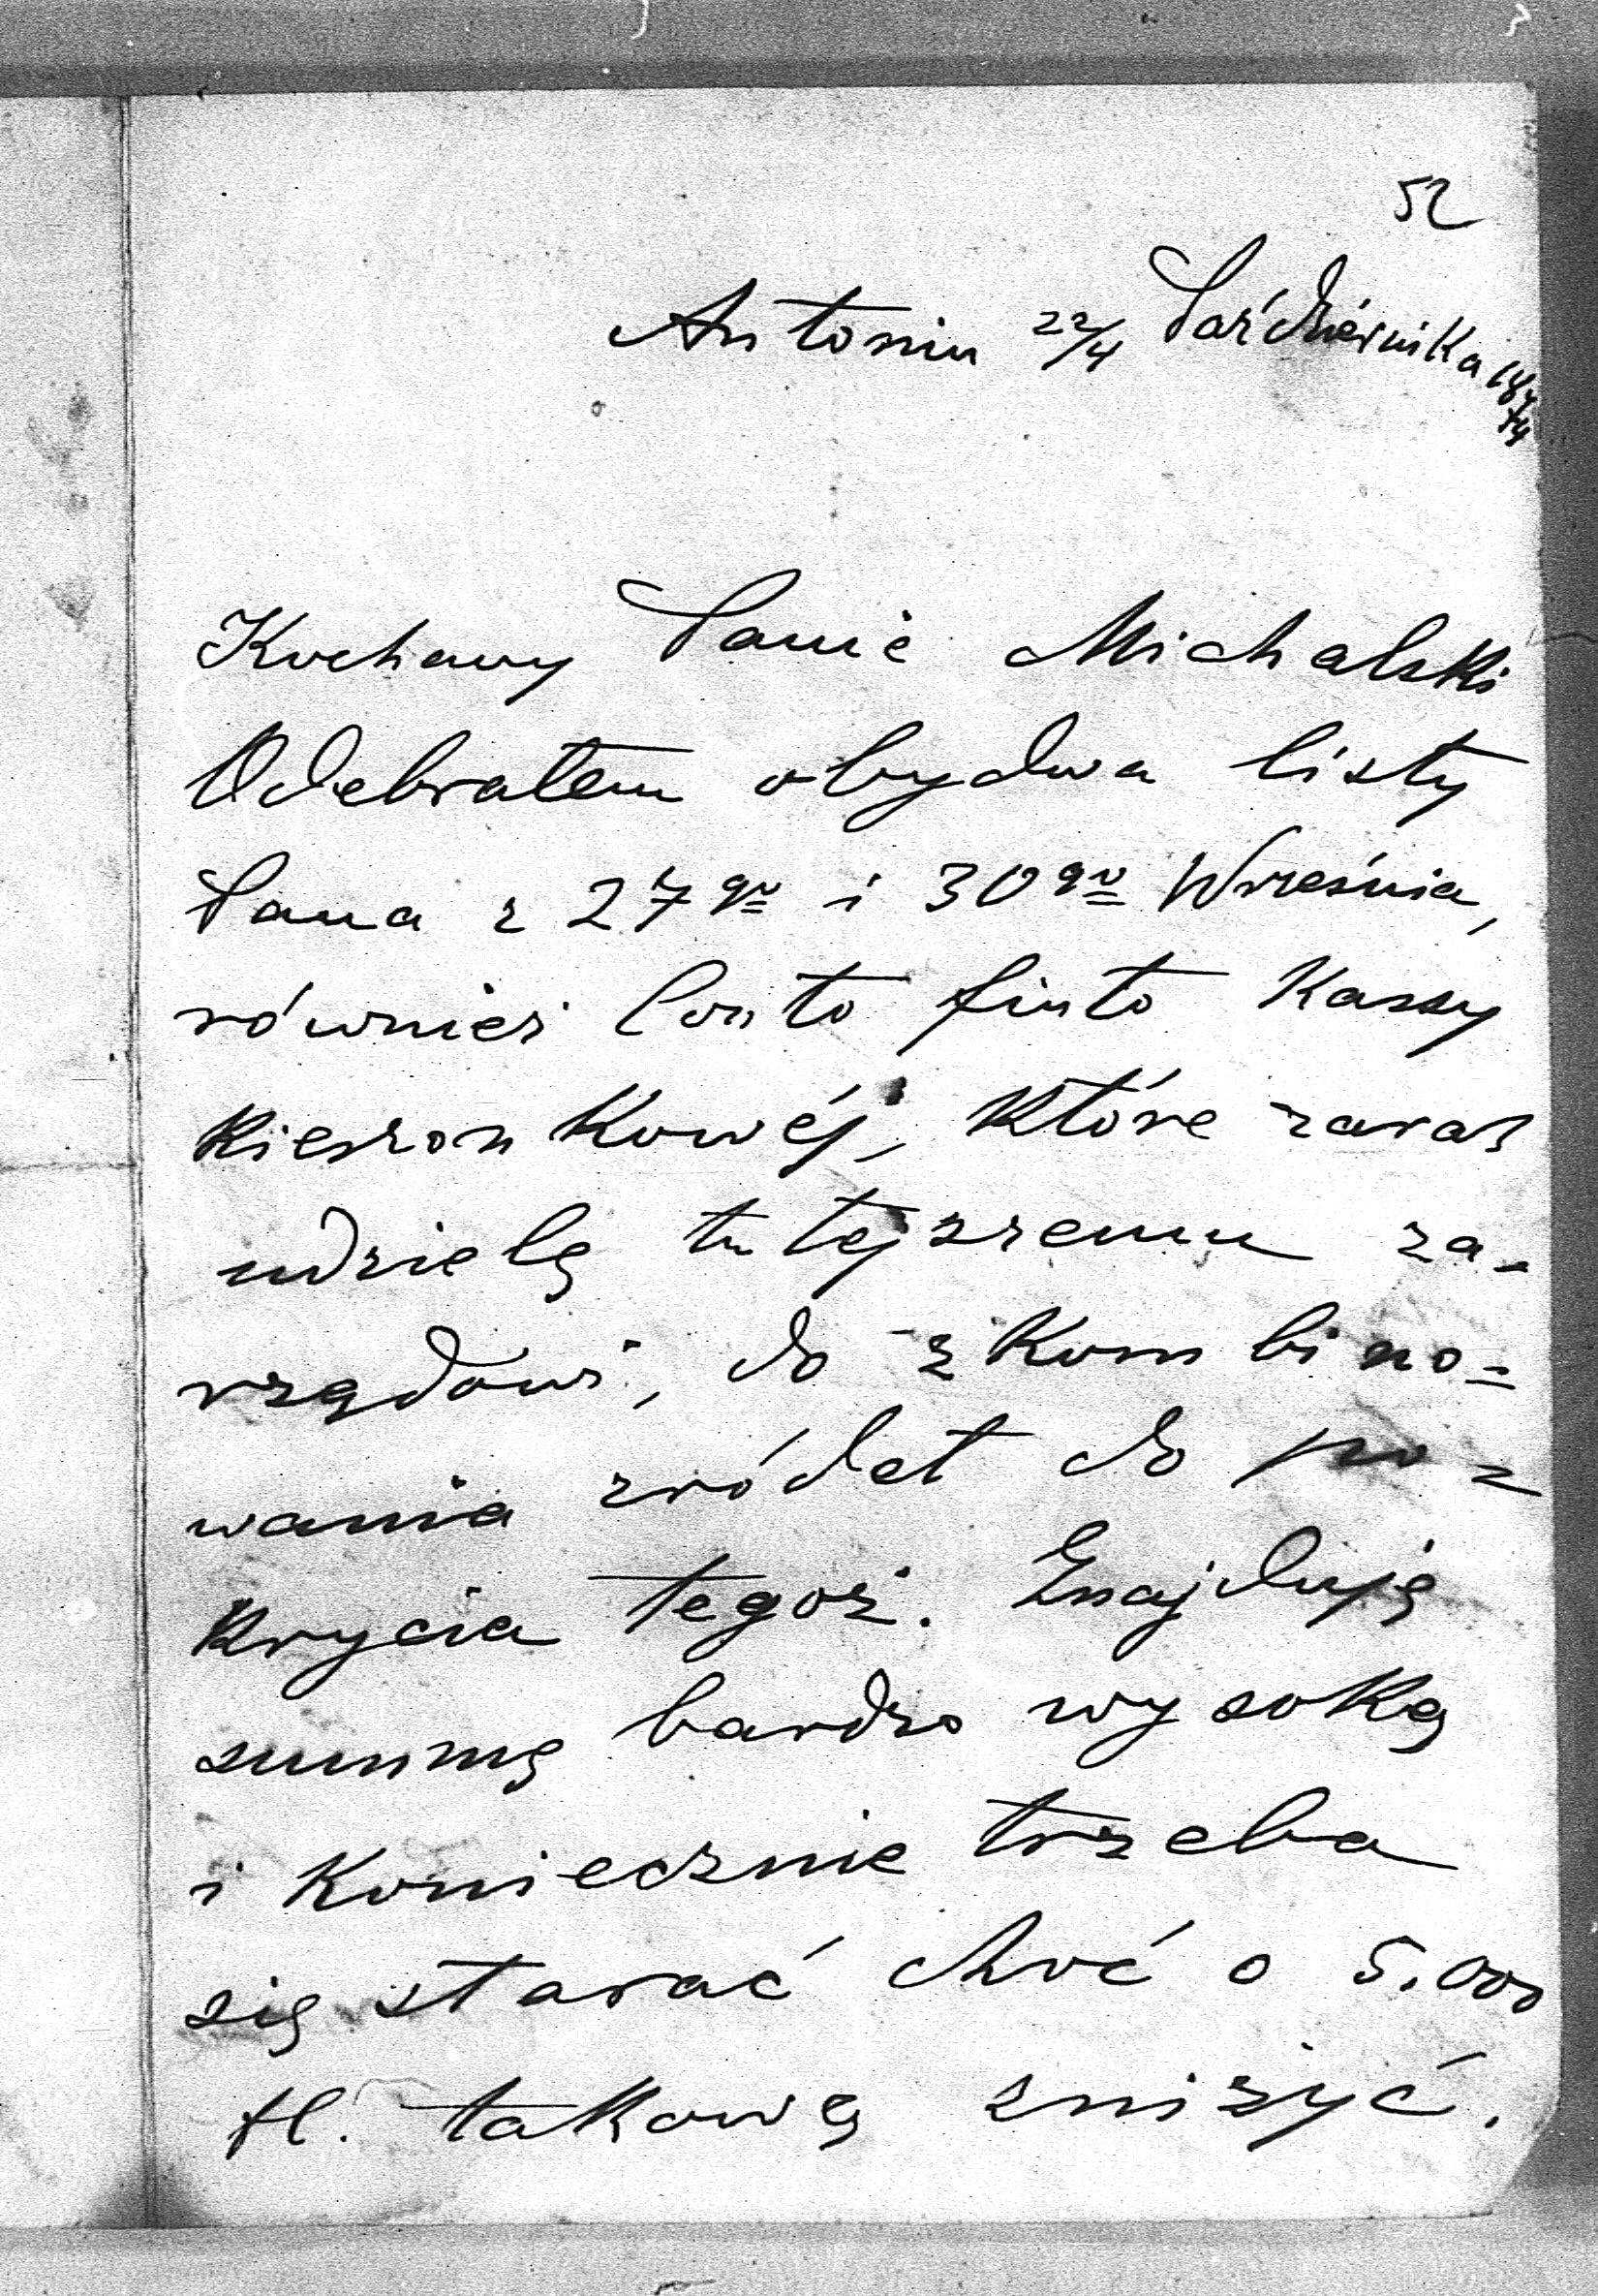 52
Antonin 22/4 Października 1874
Kochany Panie Michalski
Odebrałem obydwa listy
Pana z 27go i 30go Września,
również Conto finto Kassy
Kieszonkowéj, które zaraz
udzielę tutejszemu za-
rządowi, do zkombino-
wania zródeł do po-
krycia tegoż. Znajduję
summę bardzo wysoką
i koniecznie trzeba
się starać choć o 5.000
fl. takową zniżyć.